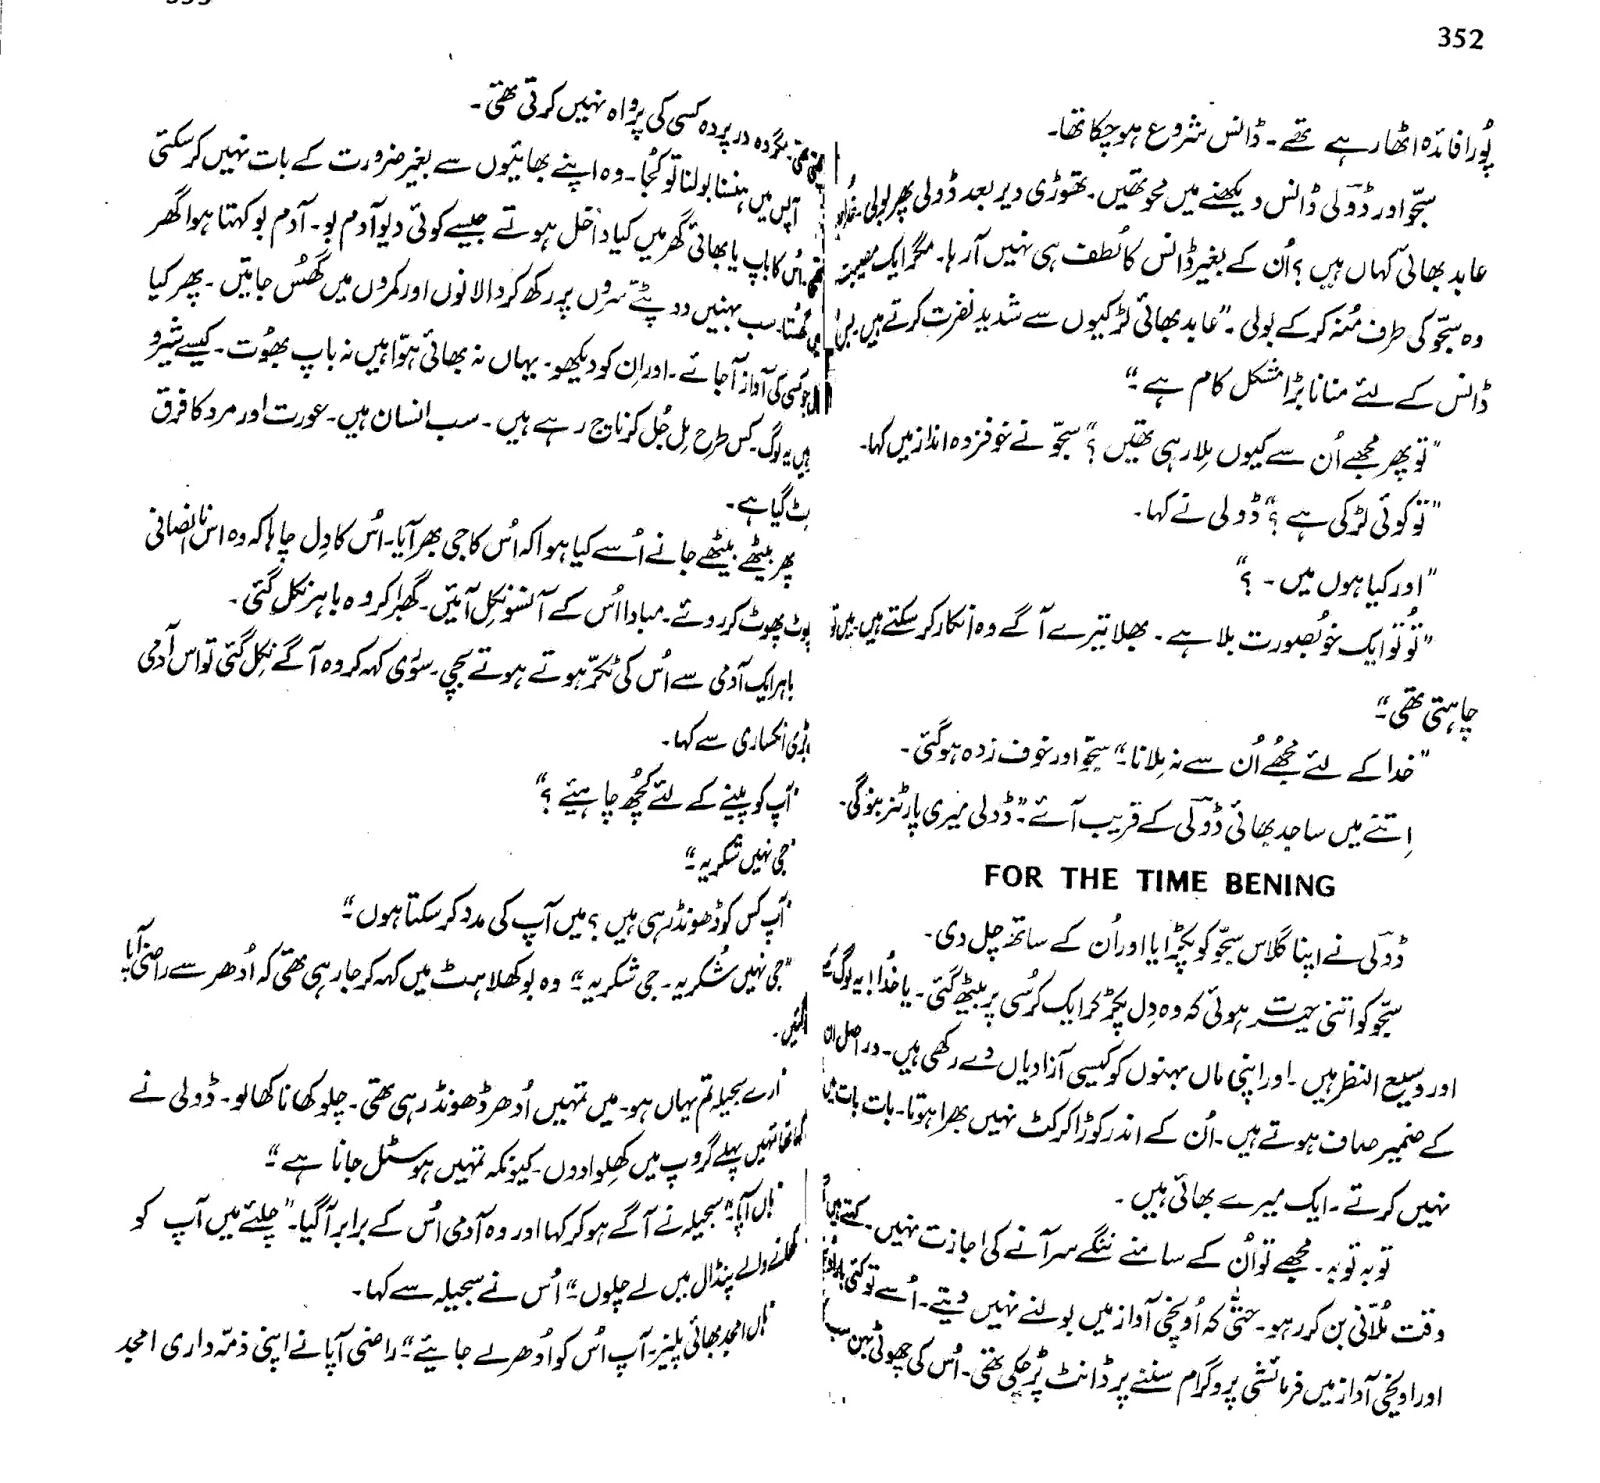 352
پورا فائدہ اٹھا رہے تھے۔ ڈانس شروع ہو چکا تھا۔
سجّو اور ڈولی ڈانس دیکھنے میں محو تھیں۔ تھوڑی دیر بعد ڈولی پھر بولی۔
عابد بھائی کہاں ہیں؟ اُن کے بغیر ڈانس کا لُطف ہی نہیں آ رہا۔ مگر ایک مصیبت
وہ سجّو کی طرف مُنہ کر کے بولی۔ "عابد بھائی لڑکیوں سے شدید نفرت کرتے ہیں۔
ڈانس کے لئے منانا بڑا مشکل کام ہے۔"
"تو پھر مجھے اُن سے کیوں مِلا رہی تھیں؟" سجّو نے خوفزدہ انداز میں کہا۔
"تو کوئی لڑکی ہے؟" ڈولی نے کہا۔
"اور کیا ہوں میں۔ ؟"
"تُو تو ایک خوبصورت بلا ہے۔ بھلا تیرے آگے وہ انکار کر سکتے ہیں۔ میں تو
چاہتی تھی۔"
"خدا کے لئے مجھے اُن سے نہ مِلانا۔" سجّو اور خوف زدہ ہو گئی۔
اِتنے میں ساجد بھائی ڈولی کے قریب آئے۔ "ڈولی میری پارٹنر بنو گی۔
FOR THE TIME BENING
ڈولی نے اپنا گلاس سجّو کو پکڑایا اور اُن کے ساتھ چل دی۔
سجّو کو اتنی حیرت ہوئی کہ وہ دِل پکڑ کر ایک کُرسی پر بیٹھ گئی۔ یا خُدا! یہ لوگ
اور وسیع النظر ہیں۔ اور اپنی ماں بہنوں کو کیسی آزادیاں دے رکھی ہیں۔ دراصل ان
کے ضمیر صاف ہوتے ہیں۔ اُن کے اندر کوڑا کرکٹ نہیں بھرا ہوتا۔ بات بات میں
نہیں کرتے۔ ایک میرے بھائی ہیں۔
توبہ توبہ۔ مجھے تو اُن کے سامنے ننگے سر آنے کی اجازت نہیں۔ کہتے ہیں
وقت مُلّانی بن کر رہو۔ حتیٰ کہ اُونچی آواز میں بولنے نہیں دیتے۔ اُسے تو کئی بار
اور اونچی آواز میں فرمائشی پروگرام سننے پر ڈانٹ پڑ چکی تھی۔ اُس کی چھوٹی بہن سب
تھی۔ مگر وہ در پردہ کسی کی پرواہ نہیں کرتی تھی۔
آپس میں ہنسنا بولنا تو کُجا۔ وہ اپنے بھائیوں سے بغیر ضرورت کے بات نہیں کر سکتی
اُس کا باپ یا بھائی گھر میں کیا داخل ہوتے جیسے کوئی دیو آدم بو۔ آدم بو کہتا ہوا گھر
میں گھُستا۔ سب بہنیں دوپٹے سروں پر رکھ کر دالانوں اور کمروں میں گھُس جاتیں۔ پھر کیا
جو کسی کی آواز آ جائے۔ اور اِن کو دیکھو۔ یہاں نہ بھائی ہوّا ہیں نہ باپ بھُوت۔ کیسے شیر و
ہیں یہ لوگ۔ کس طرح مِل جُل کر ناچ رہے ہیں۔ سب انسان ہیں۔ عورت اور مرد کا فرق
مٹ گیا ہے۔
پھر بیٹھے بیٹھے جانے اُسے کیا ہوا کہ اُس کا جی بھر آیا۔ اُس کا دِل چاہا کہ وہ اس ناانصافی
پھوٹ پھوٹ کر روئے۔ مبادا اُس کے آنسو نِکل آئیں۔ گھبرا کر وہ باہر نکل گئی۔
باہر ایک آدمی سے اُس کی ٹکّر ہوتے ہوتے بچی۔ سوری کہہ کر وہ آگے نِکل گئی تو اس آدمی
بڑی انکساری سے کہا۔
"آپ کو پینے کے لئے کُچھ چاہیئے؟"
"جی نہیں شکریہ۔"
"آپ کس کو ڈھونڈ رہی ہیں؟ میں آپ کی مدد کر سکتا ہوں۔"
"جی نہیں شُکریہ۔ جی شکریہ۔" وہ بوکھلاہٹ میں کہہ کر جا رہی تھی کہ اُدھر سے راضی آپا
آ گئیں۔
"ارے سجیلہ تم یہاں ہو۔ میں تمہیں اُدھر ڈھونڈ رہی تھی۔ چلو کھانا کھا لو۔ ڈولی نے
کہا تھا تمہیں پہلے گروپ میں کھِلوا دوں۔ کیونکہ تمہیں ہوسٹل جانا ہے۔"
"ہاں آپا۔" سجیلہ نے آگے ہو کر کہا اور وہ آدمی اُس کے برابر آ گیا۔ "چلئے میں آپ کو
کھانے والے پنڈال میں لے چلوں۔" اُس نے سجیلہ سے کہا۔
"ہاں امجد بھائی پلیز۔ آپ اُس کو اُدھر لے جایئے۔" راضی آپا نے اپنی ذمّہ داری امجد